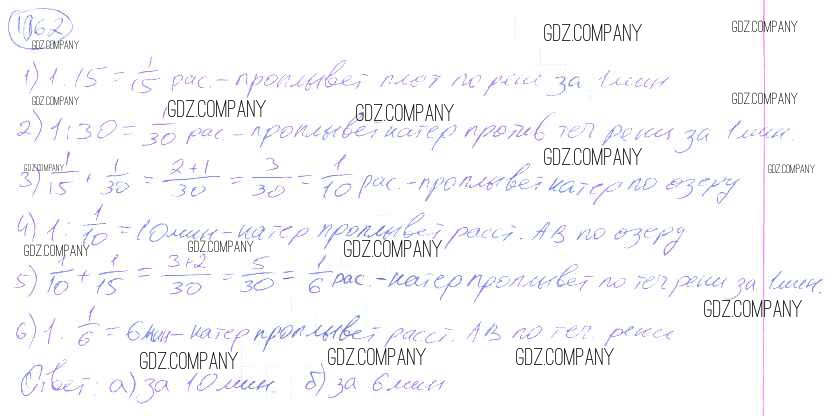 1062
GDZ.COMPANY GDZ.COMPANY GDZ.COMPANY
1) 1:15 = 1/15 рас. - проплывет плот по реки за 1 мин
GDZ.COMPANY GDZ.COMPANY GDZ.COMPANY GDZ.COMPANY
2) 1:30 = 1/30 рас - проплывет катер против теч реки за 1 мин.
GDZ.COMPANY GDZ.COMPANY GDZ.COMPANY
3) 1/15 + 1/30 = 2+1/30 = 3/30 = 1/10 рас. - проплывет катер по озеру
4) 1: 1/10 = 10 мин - катер проплывет расст. АВ по озеру
GDZ.COMPANY GDZ.COMPANY GDZ.COMPANY
5) 1/10 + 1/15 = 3+2/30 = 5/30 = 1/6 рас. - катер проплывет по теч реки за 1 мин.
GDZ.COMPANY
6) 1: 1/6 = 6 мин - катер проплывет расст. АВ по теч. реки
GDZ.COMPANY GDZ.COMPANY GDZ.COMPANY
Ответ: а) за 10 мин. б) за 6 мин